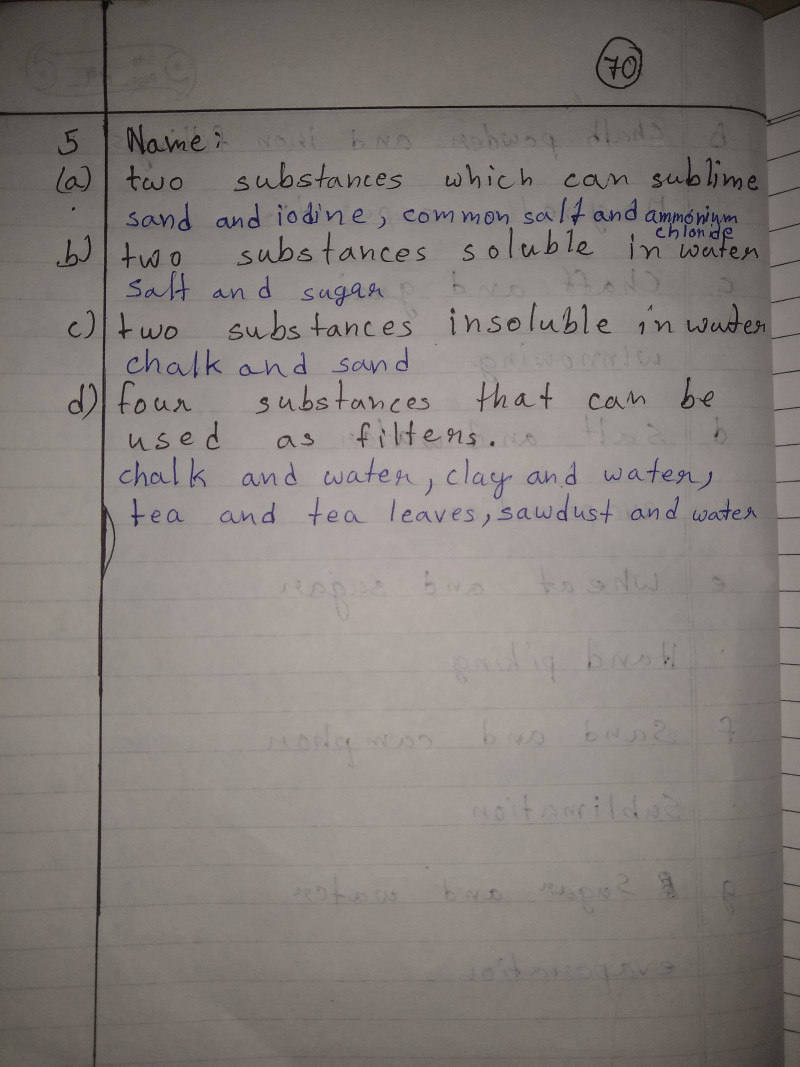 70
5 Name:
(a) two substances which can sublime
sand and iodine, common salt and ammonium
chloride
b) two substances soluble in water
Salt and sugar
c) two substances insoluble in water
chalk and sand
d) four substances that can be
used as filters.
chalk and water, clay and water,
tea and tea leaves, sawdust and water